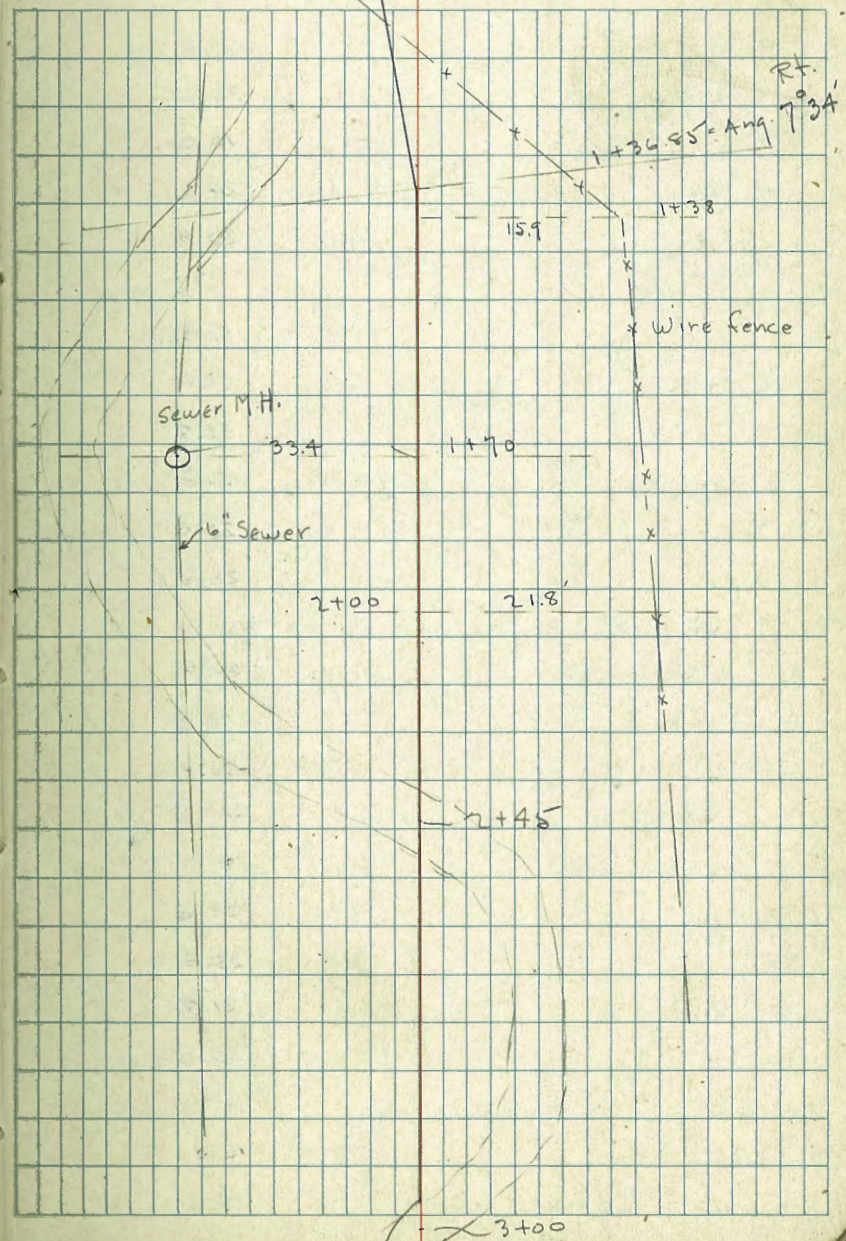 Rt.
1+36.85 = Ang. 7°34'
1+38
15.9
Wire fence
Sewer M.H.
33.4 1+70
6" Sewer
2+00 21.8'
2+45
3+00